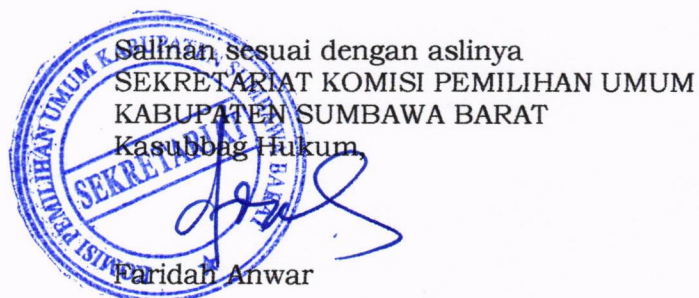 Salinan sesuai dengan aslinya
SEKRETARIAT KOMISI PEMILIHAN UMUM
KABUPATEN SUMBAWA BARAT
Kasubbag Hukum,
KOMISI PEMILIHAN UMUM KABUPATEN SUMBAWA BARAT
SEKRETARIAT
Faridah Anwar